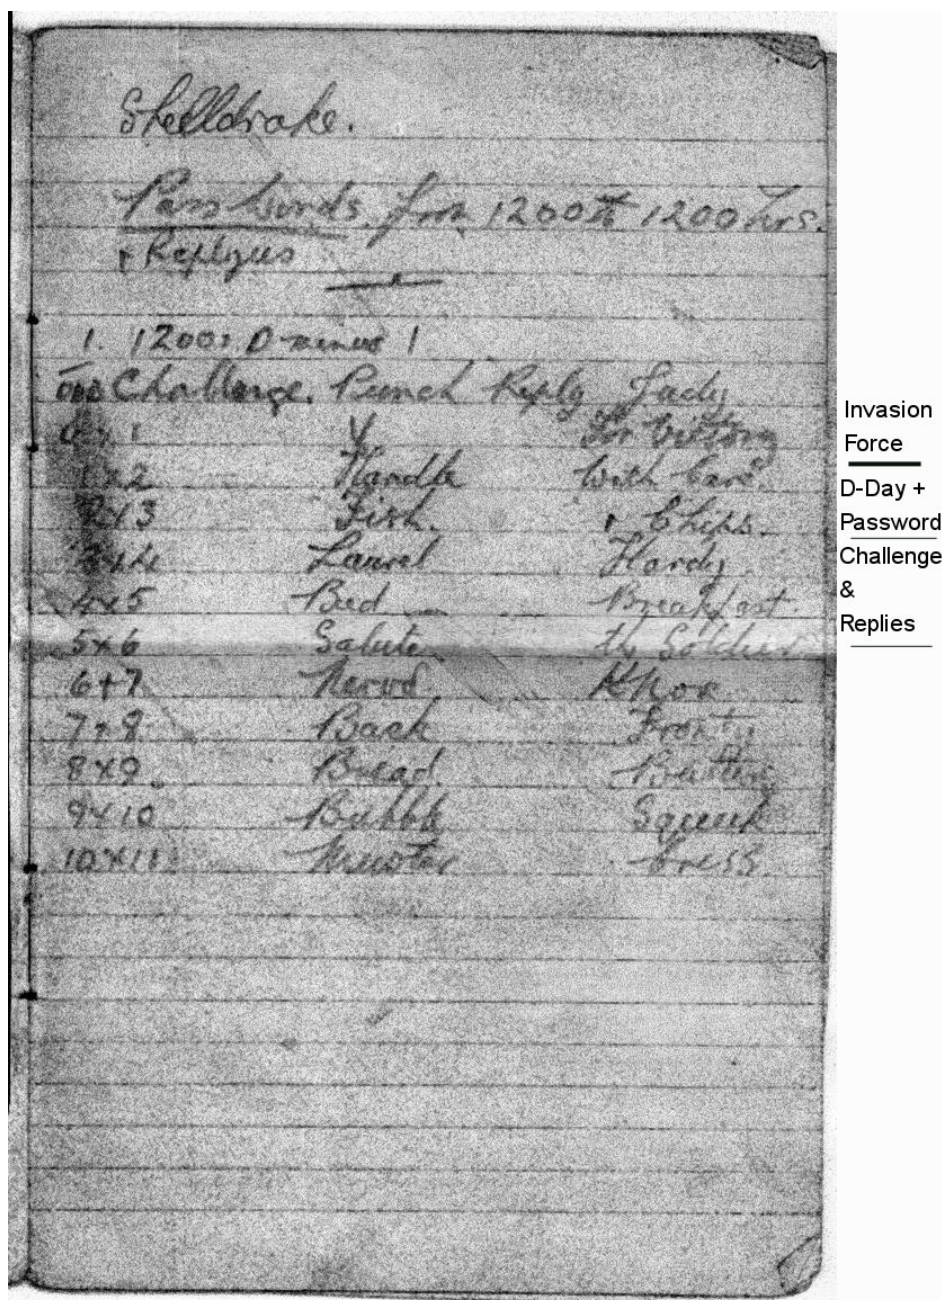 Shelldrake.
Pass Words from 1200 to 1200 hrs.
& Replyes
1. 1200, D minus 1
Challenge. Punch Reply Judy
V. for Victory
1x2 Handle With Care.
2x3 Fish. & Chips.
3x4 Laurel Hardy
4x5 Bed Breakfast.
5x6 Salute the Soldier
6+7 Knox
7x8 Back Front
8x9 Bread Butter
9x10 Bubble Squeek
10x11 Mustar Cress
Invasion
Force
D-Day +
Password
Challenge
&
Replies